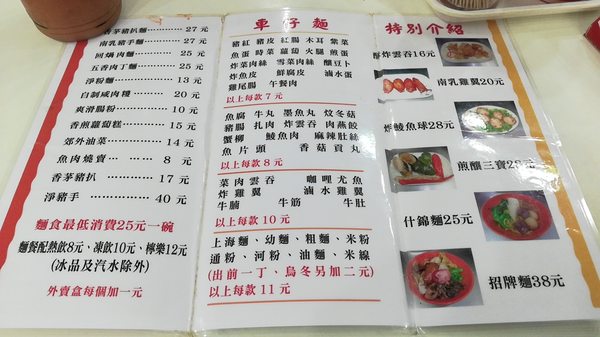 香茅豬扒麵 27元
南乳豬手麵 27元
回鍋肉麵 25元
五香肉丁麵 25元
淨餐麵 13元
自制咸肉糭 20元
爽滑腸粉 10元
香煎蘿蔔糕 15元
郊外油菜 14元
魚肉燒賣 8元
香茅豬扒 17元
淨豬手 40元
麵食最低消費25元一碗
麵餐配熱飲8元、凍飲10元、檸樂12元
(冰品及汽水除外)
外賣盒每個加一元
車仔麵
豬紅 豬皮 紅腸 木耳 紫菜
魚蛋 時菜 蘿蔔 火腿 煎蛋
炸菜肉絲 雪菜肉絲 釀豆卜
炸魚皮 鮮腐皮 滷水蛋
雞尾腸 午餐肉
以上每款7元
魚腐 牛丸 墨魚丸 炆冬菇
豬腸 扎肉 炸雲吞 肉燕餃
蟹柳 鯪魚肉 麻辣肚絲
魚片頭 香菇貢丸
以上每款8元
菜肉雲吞 咖哩尤魚
炸雞翼 滷水雞翼
牛腩 牛筋 牛肚
以上每款10元
上海麵、幼麵、粗麵、米粉
通粉、河粉、油麵、米線
(出前一丁、烏冬另加二元)
以上每款11元
特別介紹
炸雲吞16元
南乳雞翼20元
炸鯪魚球28元
煎釀三寶28元
什錦麵25元
招牌麵38元